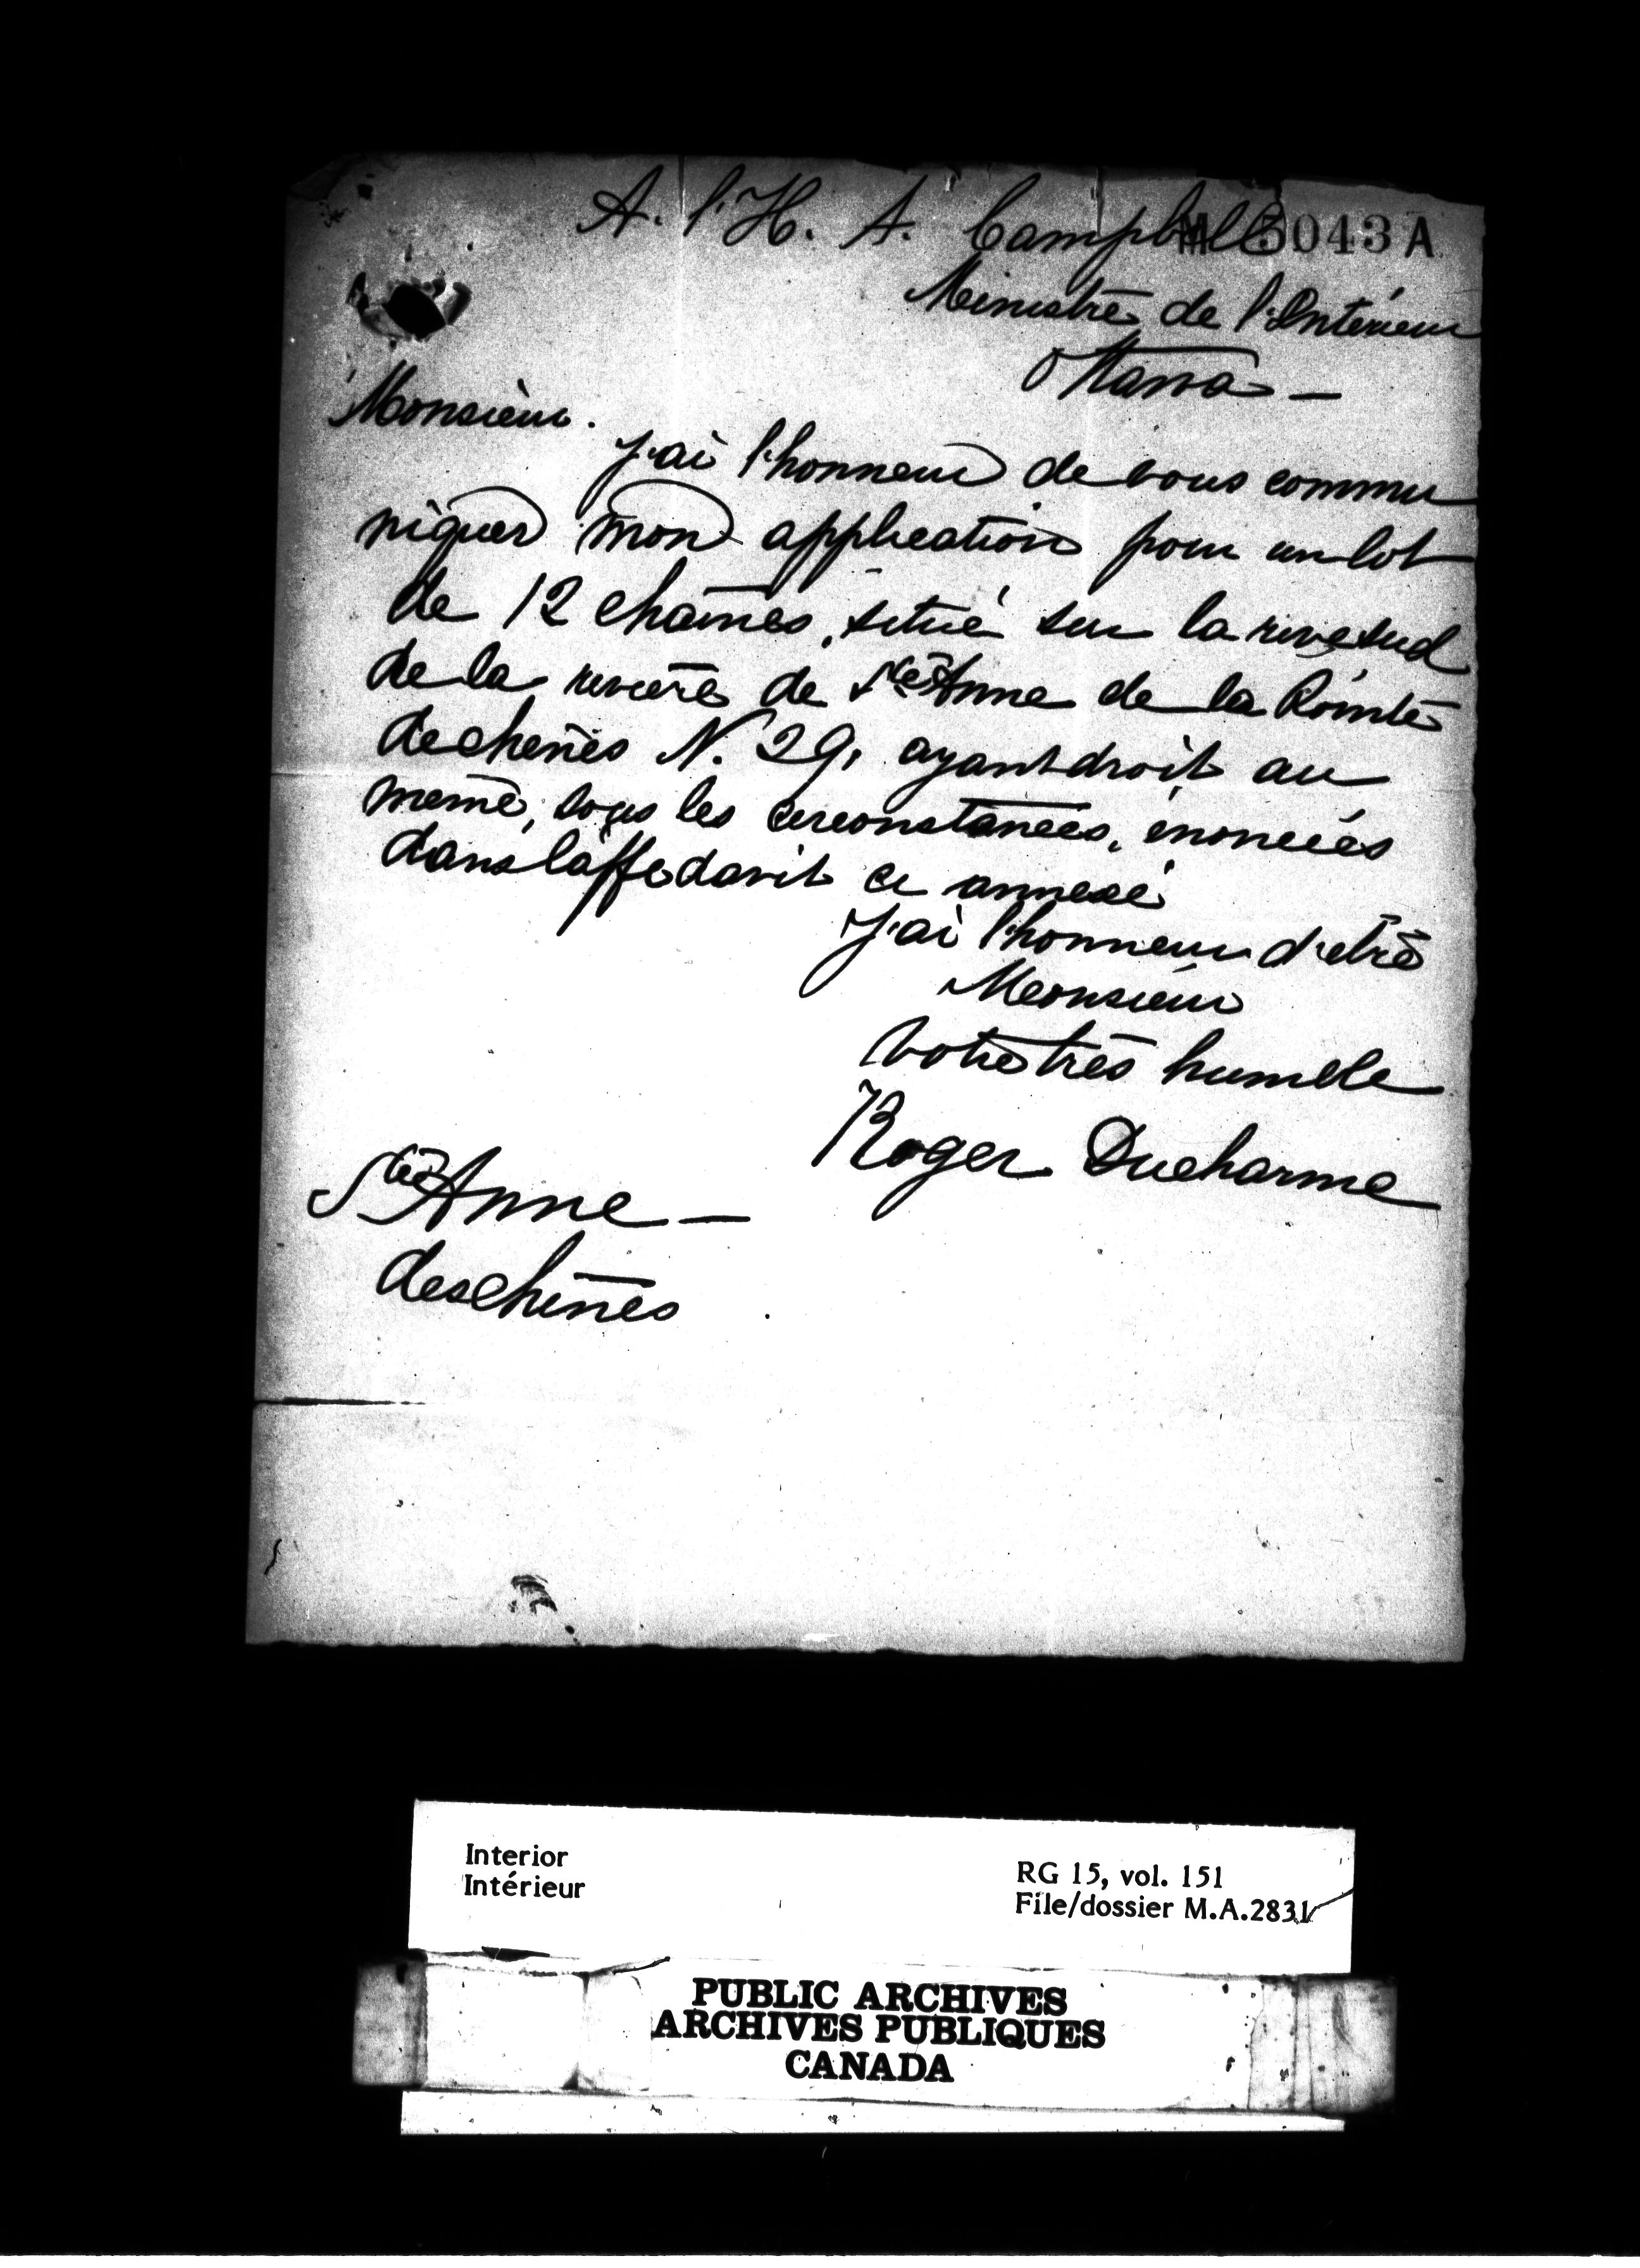 A. l'H. A. Campbell
M 5043 A
Ministre de l'Intérieur
Ottawa –
Monsieur.
J'ai l'honneur de vous commu
niquer mon application pour un lot
de 12 chaînes, situé sur la rive sud
de la rivière de Ste Anne de la Pointe
des chenes N. 29, ayant droit au
meme, sous les circonstances, énoncées
dans l'affedavit ci annexé
J'ai l'honneur d'etre
Monsieur
Votre très humble
Roger Ducharme
Ste Anne –
des Chênes
Interior
Intérieur
RG 15, vol. 151
File/dossier M.A.2831
PUBLIC ARCHIVES
ARCHIVES PUBLIQUES
CANADA